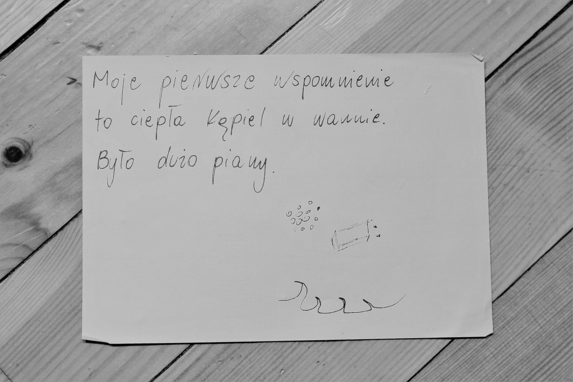 Moje pierwsze wspomnienie
to ciepła kąpiel w wannie.
Było dużo piany.